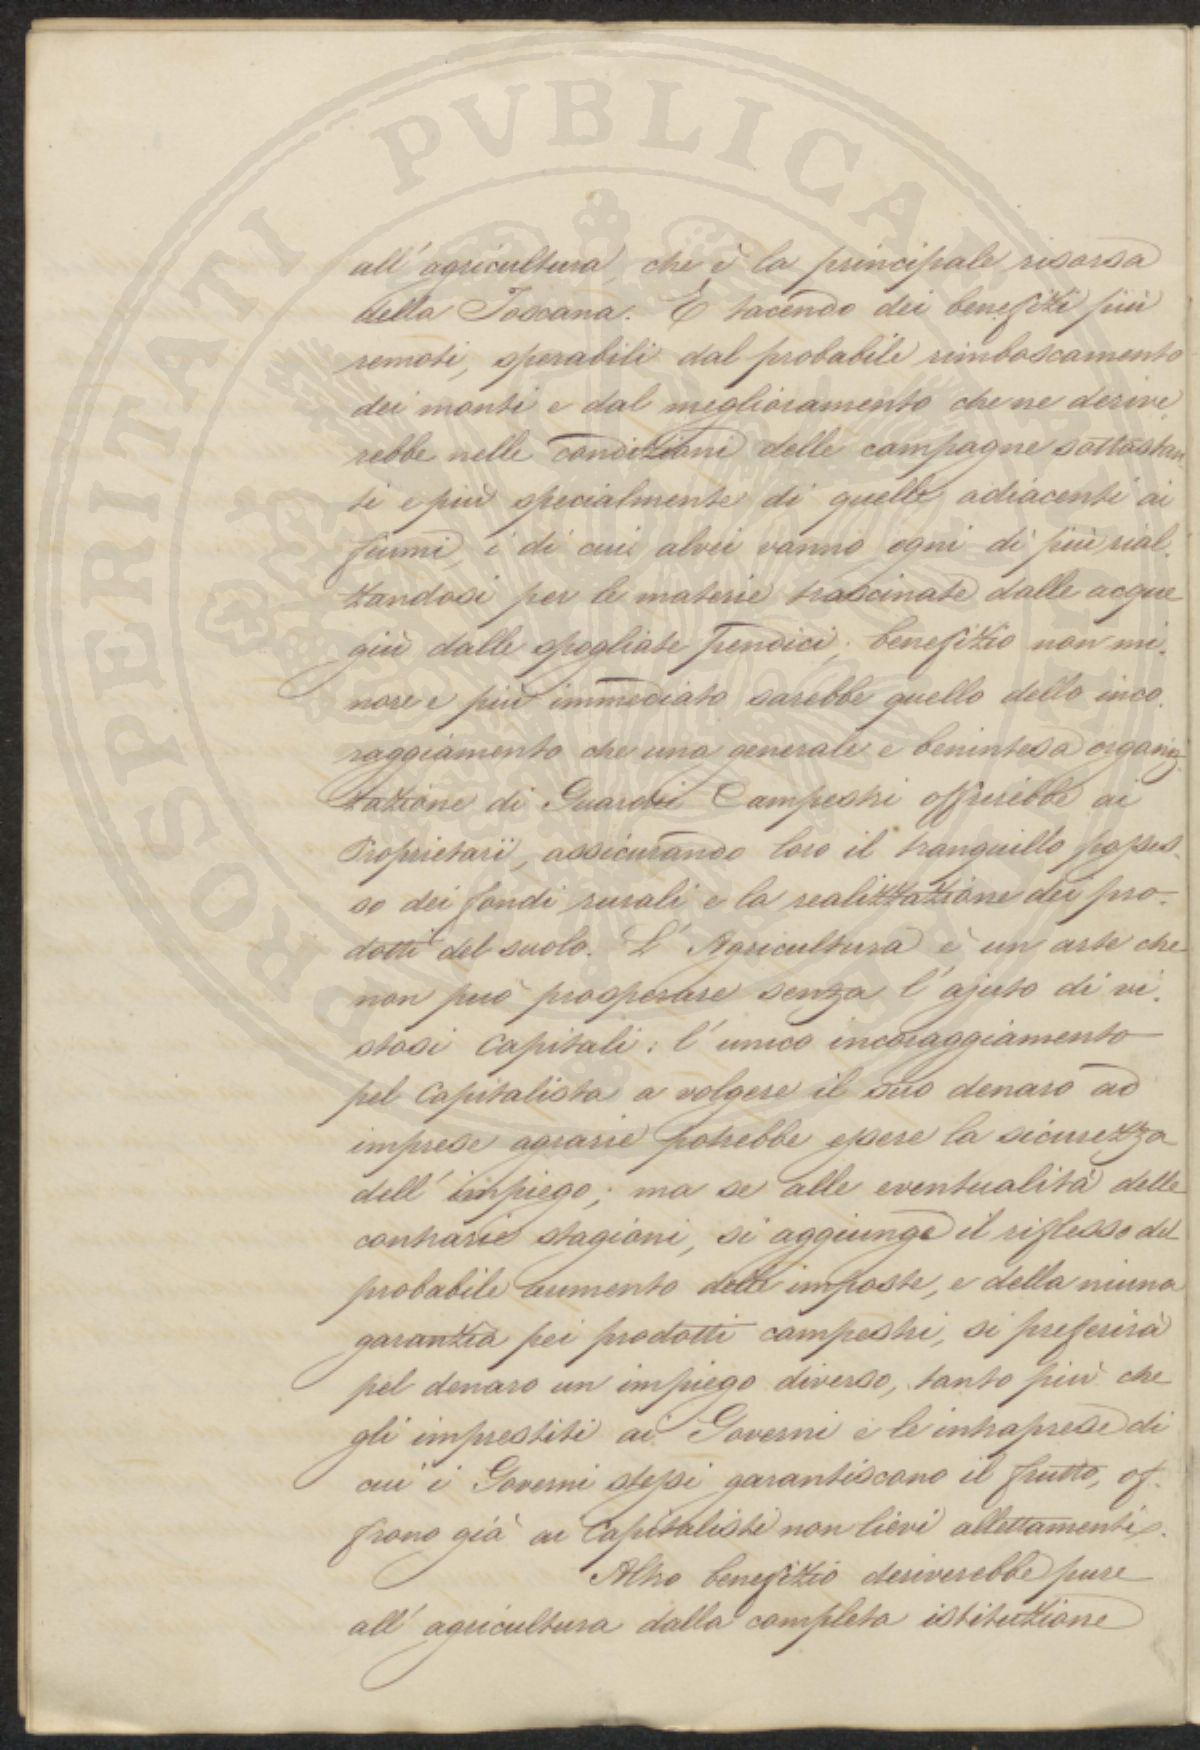 all' agricultura, che è la principale risorsa
della Toscana. E tacendo dei benefizi più
remoti, sperabili dal probabile rimboscamento
dei monti e dal miglioramento che ne derive,
rebbe nelle condizioni delle campagne sottostan
ti e più specialmente di quelle adiacenti ai
fiumi, i di cui alvei vanno ogni dì più rial,
zandosi per le materie trascinate dalle acque
giù dalle spogliate pendici; benefizio non mi,
nore e più immediato sarebbe quello dello inco,
raggiamento che una generale e benintesa organiz,
zazione di Guardie Campestri offrirebbe ai
Proprietarii, assicurando loro il tranquillo posses,
so dei fondi rurali e la realizzazione dei pro-
dotti del suolo. L' Agricultura è un arte che
non può prosperare senza l' ajuto di vi,
stosi Capitali: l' unico incoraggiamento
pel Capitalista a volgere il suo denaro ad
imprese agrarie potrebbe essere la sicurezza
dell' impiego; ma se alle eventualità delle
contrarie stagioni, si aggiunge il riflesso del
probabile aumento delle imposte, e della niuna
garanzia pei prodotti campestri, si preferirà
pel denaro un impiego diverso, tanto più che
gli imprestiti ai Governi e le intraprese di
cui i Governi stessi garantiscono il frutto, of,
frono già ai Capitalisti non lievi allettamenti.
Altro benefizio deriverebbe pure
all' agricultura dalla completa istituzione
PROSPERITATI PVBLICAE